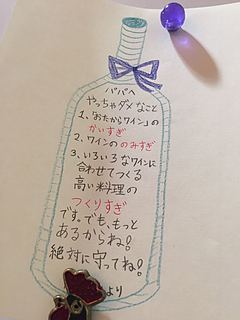 パパへ
やっちゃダメなこと
1、「おたからワイン」の
かいすぎ
2、ワインののみすぎ
3、いろいろなワインに
合わせてつくる
高い料理の
つくりすぎ
です。でも、もっと
あるからね!
絶対に守ってね!
より